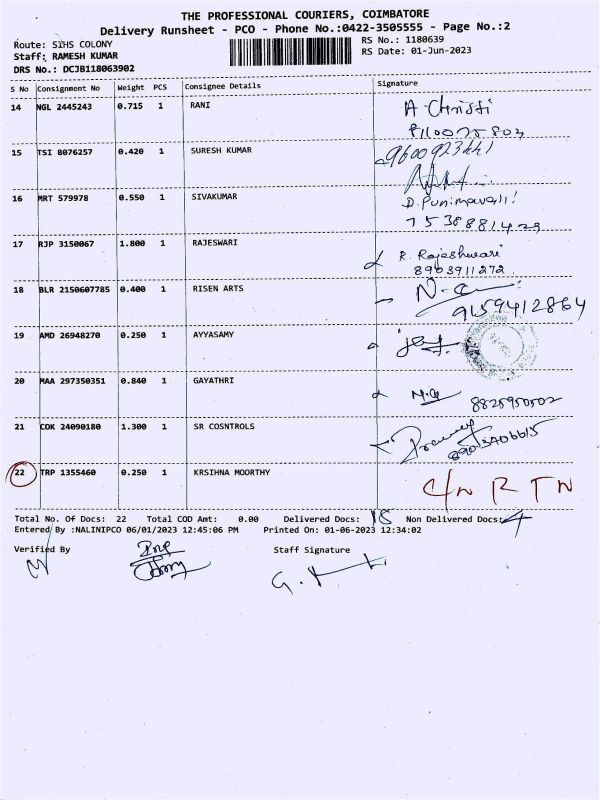 THE PROFESSIONAL COURIERS, COIMBATORE
Delivery Runsheet - PCO - Phone No.:0422-3505555 - Page No.:2
Route: SIHS COLONY
RS No.: 1180639
Staff: RAMESH KUMAR
RS Date: 01-Jun-2023
DRS No.: DCJB118063902
S No Consignment No Weight PCS Consignee Details Signature
14 NGL 2445243 0.715 1 RANI A. Christi
15 TSI 8076257 0.420 1 SURESH KUMAR 9600923441
16 MRT 579978 0.550 1 SIVAKUMAR D. Punimavalli
17 RJP 3150067 1.800 1 RAJESWARI R. Rajeshwari
8903911272
18 BLR 2150607785 0.400 1 RISEN ARTS
9159412864
19 AMD 26948270 0.250 1 AYYASAMY
20 MAA 297350351 0.840 1 GAYATHRI
8825950502
21 COK 24090180 1.300 1 SR COSNTROLS
22 TRP 1355460 0.250 1 KRSIHNA MOORTHY C/N R T N
Total No. Of Docs: 22 Total COD Amt: 0.00 Delivered Docs: 18 Non Delivered Docs: 4
Entered By :NALINIPCO 06/01/2023 12:45:06 PM Printed On: 01-06-2023 12:34:02
Verified By Staff Signature